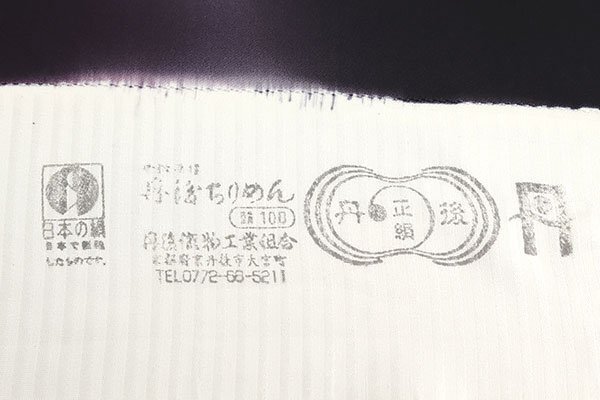 日本の絹
日本で製織
したものです。
丹後ちりめん
絹100
丹後織物工業組合
京都府京丹後市大宮町
TEL0772-68-5211
丹
正絹
後